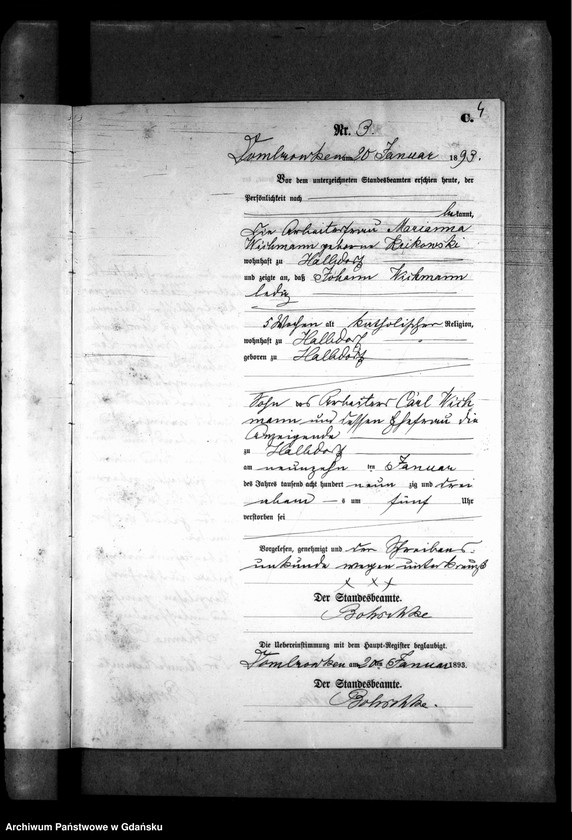 C. 4
Nr. 3.
Dombrowken am 20 Januar 1893.
Vor dem unterzeichneten Standesbeamten erschien heute, der
Persönlichkeit nach
bekannt,
die Arbeiterfrau Marianna
Wichmann geborne
wohnhaft zu Halbdorf
und zeigte an, daß Johann Wichmann
ledig
5 Wochen alt katholischer Religion,
wohnhaft zu Halbdorf
geboren zu Halbdorf
Sohn des Arbeiters Carl Wich
mann und dessen Ehefrau die
Anzeigende
zu Halbdorf
am neunzehn ten Januar
des Jahres tausend acht hundert neun zig und drei
abend s um fünf Uhr
verstorben sei
Vorgelesen, genehmigt und der Schreibens
unkunde wegen unterkreuzt
x x x
Der Standesbeamte.
Die Uebereinstimmung mit dem Haupt-Register beglaubigt.
Dombrowken am 20 Januar 1893.
Der Standesbeamte.
Archiwum Państwowe w Gdańsku